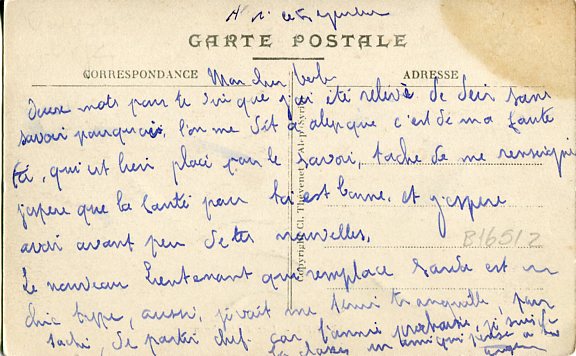 CARTE POSTALE
CORRESPONDANCE
ADRESSE
Mon cher
Deux mots pour te dire que j'ai été relevé de Deir sans
savoir pourquoi, l'on me dit à alep que c'est de ma faute
toi, qui est bien placé pour le savoir, tache de me renseigner
j'espere que la santé pour toi est bonne. et j'espere
avoir avant peu de tes nouvelles.
Le nouveau lieutenant qui remplace est un
chic type, aussi, je vait me tenir tranquille, pour
taché, de partir chef car l'année prochaine, je suis
la classe un ami qui pense à toi
Copyright Cl. Thévenet Alep-Syrie
B16512